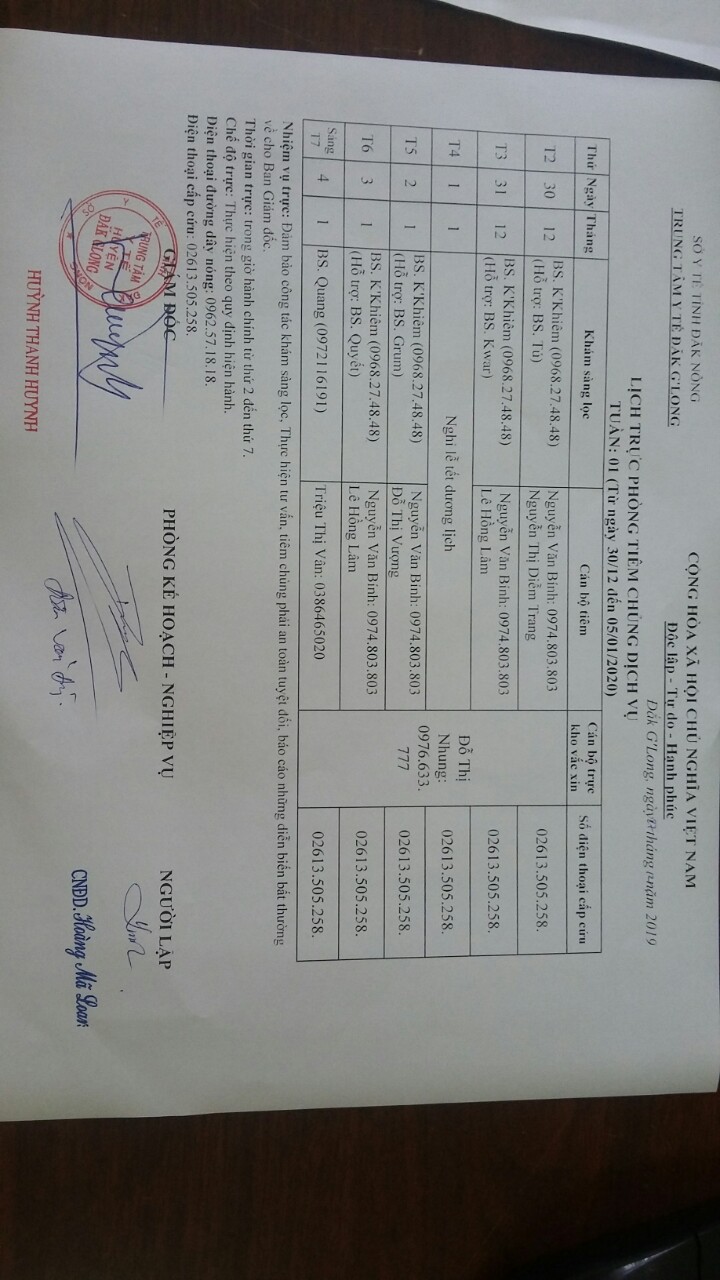 SỞ Y TẾ TỈNH ĐĂK NÔNG
TRUNG TÂM Y TẾ ĐĂK G'LONG
CỘNG HÒA XÃ HỘI CHỦ NGHĨA VIỆT NAM
Độc lập - Tự do - Hạnh phúc
Đăk G'Long, ngày tháng năm 2019
LỊCH TRỰC PHÒNG TIÊM CHỦNG DỊCH VỤ
TUẦN: 01 (Từ ngày 30/12 đến 05/01/2020)
Thứ Ngày Tháng Khám sàng lọc Cán bộ tiêm Cán bộ trực kho vắc xin Số điện thoại cấp cứu
T2 30 12 BS. K'Khiêm (0968.27.48.48) Nguyễn Văn Bính: 0974.803.803 02613.505.258.
(Hỗ trợ: BS. Tú) Nguyễn Thị Diễm Trang
T3 31 12 BS. K'Khiêm (0968.27.48.48) Nguyễn Văn Bính: 0974.803.803 02613.505.258.
(Hỗ trợ: BS. Kwar) Lê Hồng Lâm
T4 1 1 Nghỉ lễ tết dương lịch 02613.505.258.
Đỗ Thị
Nhung:
0976.633.
777
T5 2 1 BS. K'Khiêm (0968.27.48.48) Nguyễn Văn Bính: 0974.803.803 02613.505.258.
(Hỗ trợ: BS. Grum) Đỗ Thị Vượng
T6 3 1 BS. K'Khiêm (0968.27.48.48) Nguyễn Văn Bính: 0974.803.803 02613.505.258.
(Hỗ trợ: BS. Quyết) Lê Hồng Lâm
Sáng T7 4 1 BS. Quang (0972116191) Triệu Thị Vân: 0386465020 02613.505.258.
Nhiệm vụ trực: Đảm bảo công tác khám sàng lọc, Thực hiện tư vấn, tiêm chủng phải an toàn tuyệt đối, báo cáo những diễn biến bất thường
về cho Ban Giám đốc.
Thời gian trực: trong giờ hành chính từ thứ 2 đến thứ 7.
Chế độ trực: Thực hiện theo quy định hiện hành.
Điện thoại đường dây nóng: 0962.57.18.18.
Điện thoại cấp cứu: 02613.505.258.
GIÁM ĐỐC PHÒNG KẾ HOẠCH - NGHIỆP VỤ NGƯỜI LẬP
SỞ Y TẾ
TRUNG TÂM
Y TẾ
HUYỆN
ĐĂK GLONG
HUỲNH THANH HUYNH
CNĐD. Hoàng Mã Loan